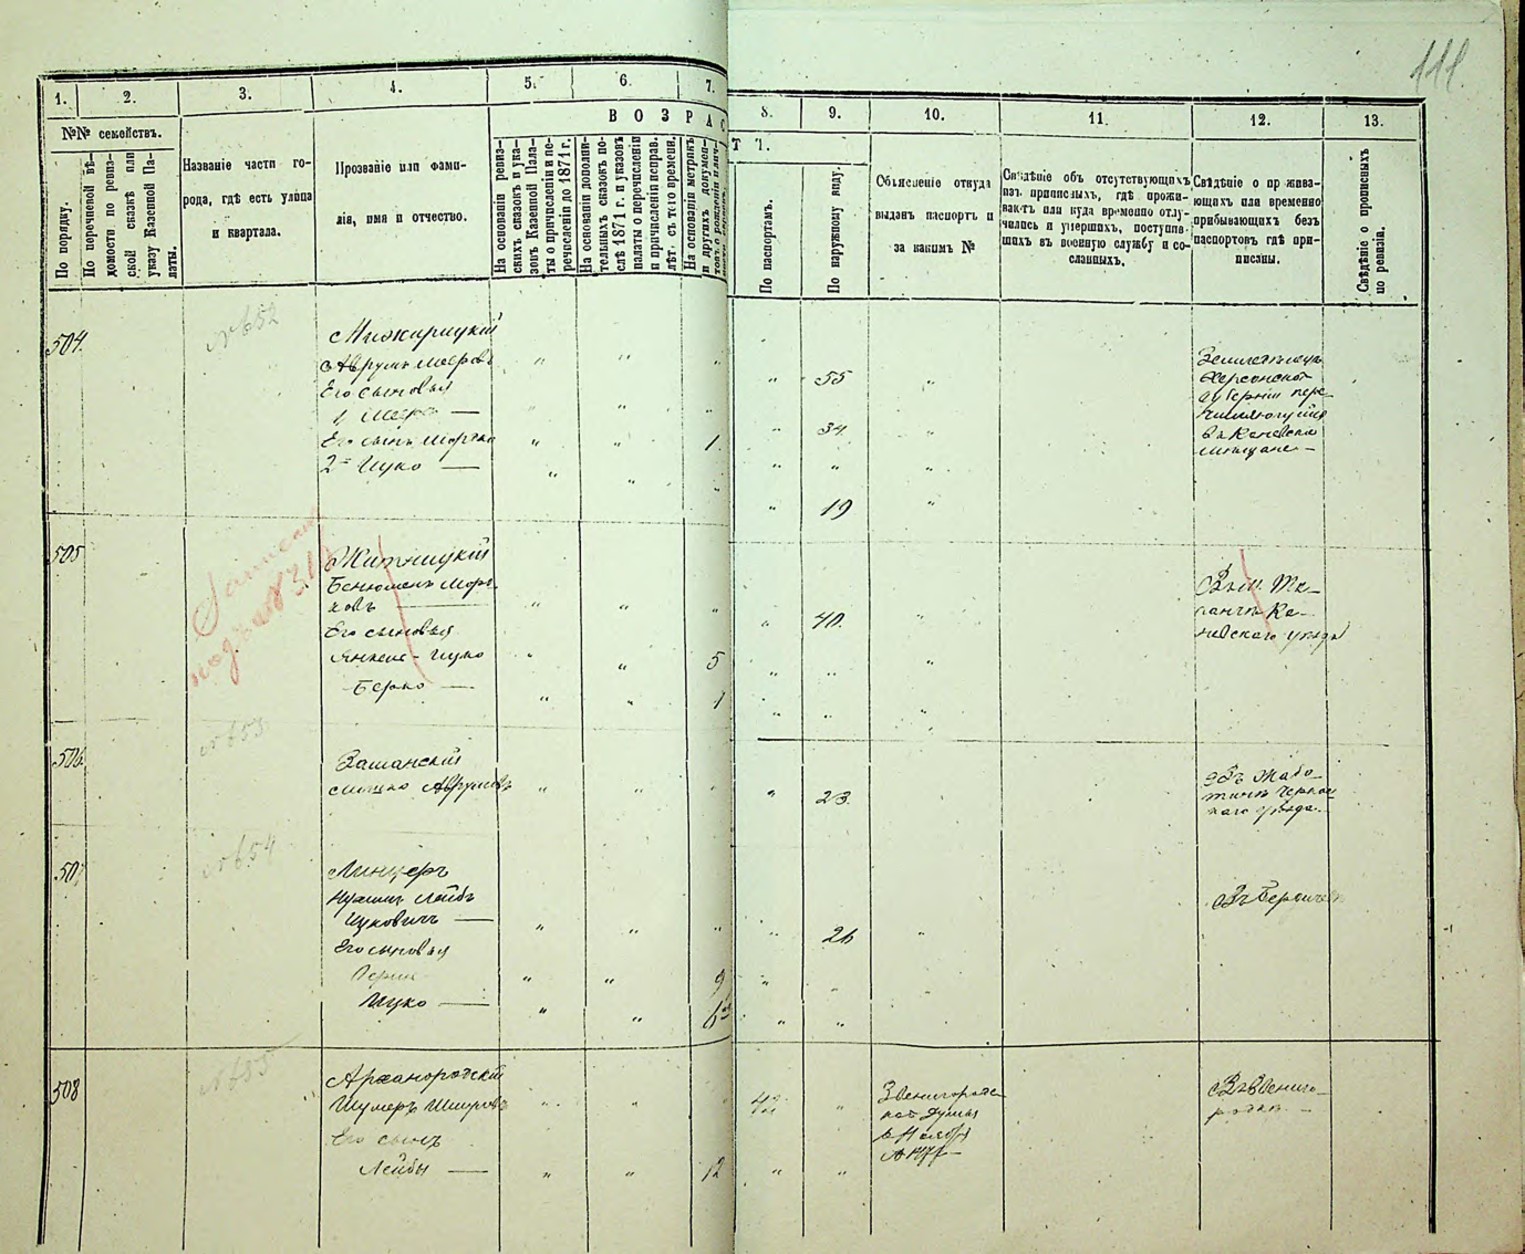 111
1. 2. 3. 4. 5. 6. 7. 8. 9. 10. 11. 12. 13.
№№ семействъ.
По порядку.
По перечневой вѣ-
домости по ревиз-
ской сказкѣ или
указу Казенной Па-
латы.
Названіе части го-
рода, гдѣ есть улица
и квартала.
Прозваніе или фами-
лія, имя и отчество.
ВОЗРАСТЪ.
На основаніи ревиз-
скихъ сказокъ и ука-
зовъ Казенной Пала-
ты о причисленіи и пе-
речисленіи до 1871 г.
На основаніи дополни-
тельныхъ сказокъ по-
слѣ 1871 г. и указовъ
палаты о перечисленіи
и причисленіи исправ.
лѣт, съ того времени.
На основаніи метрикъ
и другихъ докумен-
По паспортамъ.
По наружному виду.
Объясненіе откуда
выданъ паспортъ и
за какимъ №
Свѣдѣніе объ отсутствующихъ
изъ приписныхъ, гдѣ прожи-
ваютъ или куда временно отлу-
чились и умершихъ, поступив-
шихъ въ военную службу и со-
сланныхъ.
Свѣдѣніе о прожива-
ющихъ или временно
прибывающихъ безъ
паспортовъ гдѣ при-
писаны.
Свѣдѣніе о прописныхъ
по ревизіи.
504.
№652
Мижирицкій
Аврумъ Мееровъ
55
Его сыновья
1 Меер —
34.
Его сынъ Мортко
1.
2й Ицко —
19
Херсонской
губерніи пере
числяющійся
въ Каневскіе
мѣщане —
505
подъ № 31
Житницкій
Бенюменъ Морт-
ковъ —
40.
Его сыновья
Янкель-Ицко
5
Берко —
1
Въ м. Та-
ганчѣ Ка-
невскаго уѣзда
506.
№653
Зашанскій
Мошко Аврумовъ
23.
Въ Жабо-
тинѣ Черкас
каго уѣзда.
507
№654
Линцеръ
Лейбъ
Ицковичъ —
26
Его сыновья
9
Ицко —
6
Въ Бердичевѣ
508
№655
Архангородскій
Шумеръ Шмуровъ
42
Его сынъ
Лейбы —
12
Звенигородс-
кой Думы
Въ Звениго-
родкѣ —